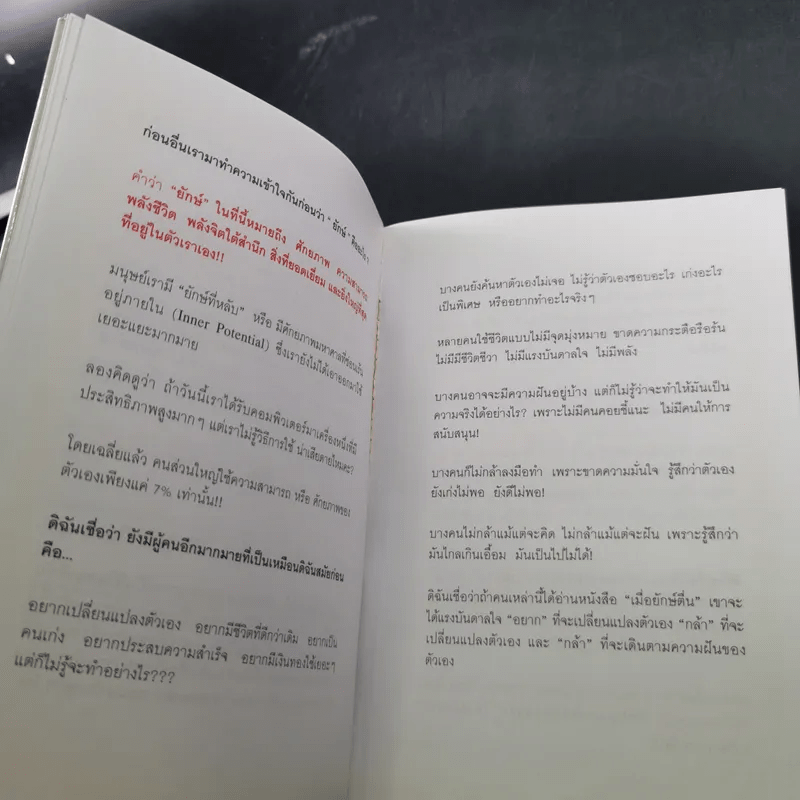 ก่อนอื่นเรามาทำความเข้าใจกันก่อนว่า "ยักษ์" คืออะไร?
คำว่า "ยักษ์" ในที่นี้หมายถึง ศักยภาพ ความสามารถ
พลังชีวิต พลังจิตใต้สำนึก สิ่งที่ยอดเยี่ยม และยิ่งใหญ่ที่สุด
ที่อยู่ในตัวเราเอง!!
มนุษย์เรามี "ยักษ์ที่หลับ" หรือ มีศักยภาพมหาศาลที่ซ่อนเร้น
อยู่ภายใน (Inner Potential) ซึ่งเรายังไม่ได้เอาออกมาใช้
เยอะแยะมากมาย
ลองคิดดูว่า ถ้าวันนี้เราได้รับคอมพิวเตอร์มาเครื่องหนึ่งที่มี
ประสิทธิภาพสูงมากๆ แต่เราไม่รู้วิธีการใช้ น่าเสียดายไหมคะ?
โดยเฉลี่ยแล้ว คนส่วนใหญ่ใช้ความสามารถ หรือ ศักยภาพของ
ตัวเองเพียงแค่ 7% เท่านั้น!!
ดิฉันเชื่อว่า ยังมีผู้คนอีกมากมายที่เป็นเหมือนดิฉันสมัยก่อน
คือ...
อยากเปลี่ยนแปลงตัวเอง อยากมีชีวิตที่ดีกว่าเดิม อยากเป็น
คนเก่ง อยากประสบความสำเร็จ อยากมีเงินทองใช้เยอะๆ
แต่ก็ไม่รู้จะทำอย่างไร???
บางคนยังค้นหาตัวเองไม่เจอ ไม่รู้ว่าตัวเองชอบอะไร เก่งอะไร
เป็นพิเศษ หรืออยากทำอะไรจริงๆ
หลายคนใช้ชีวิตแบบไม่มีจุดมุ่งหมาย ขาดความกระตือรือร้น
ไม่มีมีชีวิตชีวา ไม่มีแรงบันดาลใจ ไม่มีพลัง
บางคนอาจจะมีความฝันอยู่บ้าง แต่ก็ไม่รู้ว่าจะทำให้มันเป็น
ความจริงได้อย่างไร? เพราะไม่มีคนคอยชี้แนะ ไม่มีคนให้การ
สนับสนุน!
บางคนก็ไม่กล้าลงมือทำ เพราะขาดความมั่นใจ รู้สึกว่าตัวเอง
ยังเก่งไม่พอ ยังดีไม่พอ!
บางคนไม่กล้าแม้แต่จะคิด ไม่กล้าแม้แต่จะฝัน เพราะรู้สึกว่า
มันไกลเกินเอื้อม มันเป็นไปไม่ได้!
ดิฉันเชื่อว่าถ้าคนเหล่านี้ได้อ่านหนังสือ "เมื่อยักษ์ตื่น" เขาจะ
ได้แรงบันดาลใจ "อยาก" ที่จะเปลี่ยนแปลงตัวเอง "กล้า" ที่จะ
เปลี่ยนแปลงตัวเอง และ "กล้า" ที่จะเดินตามความฝันของ
ตัวเอง